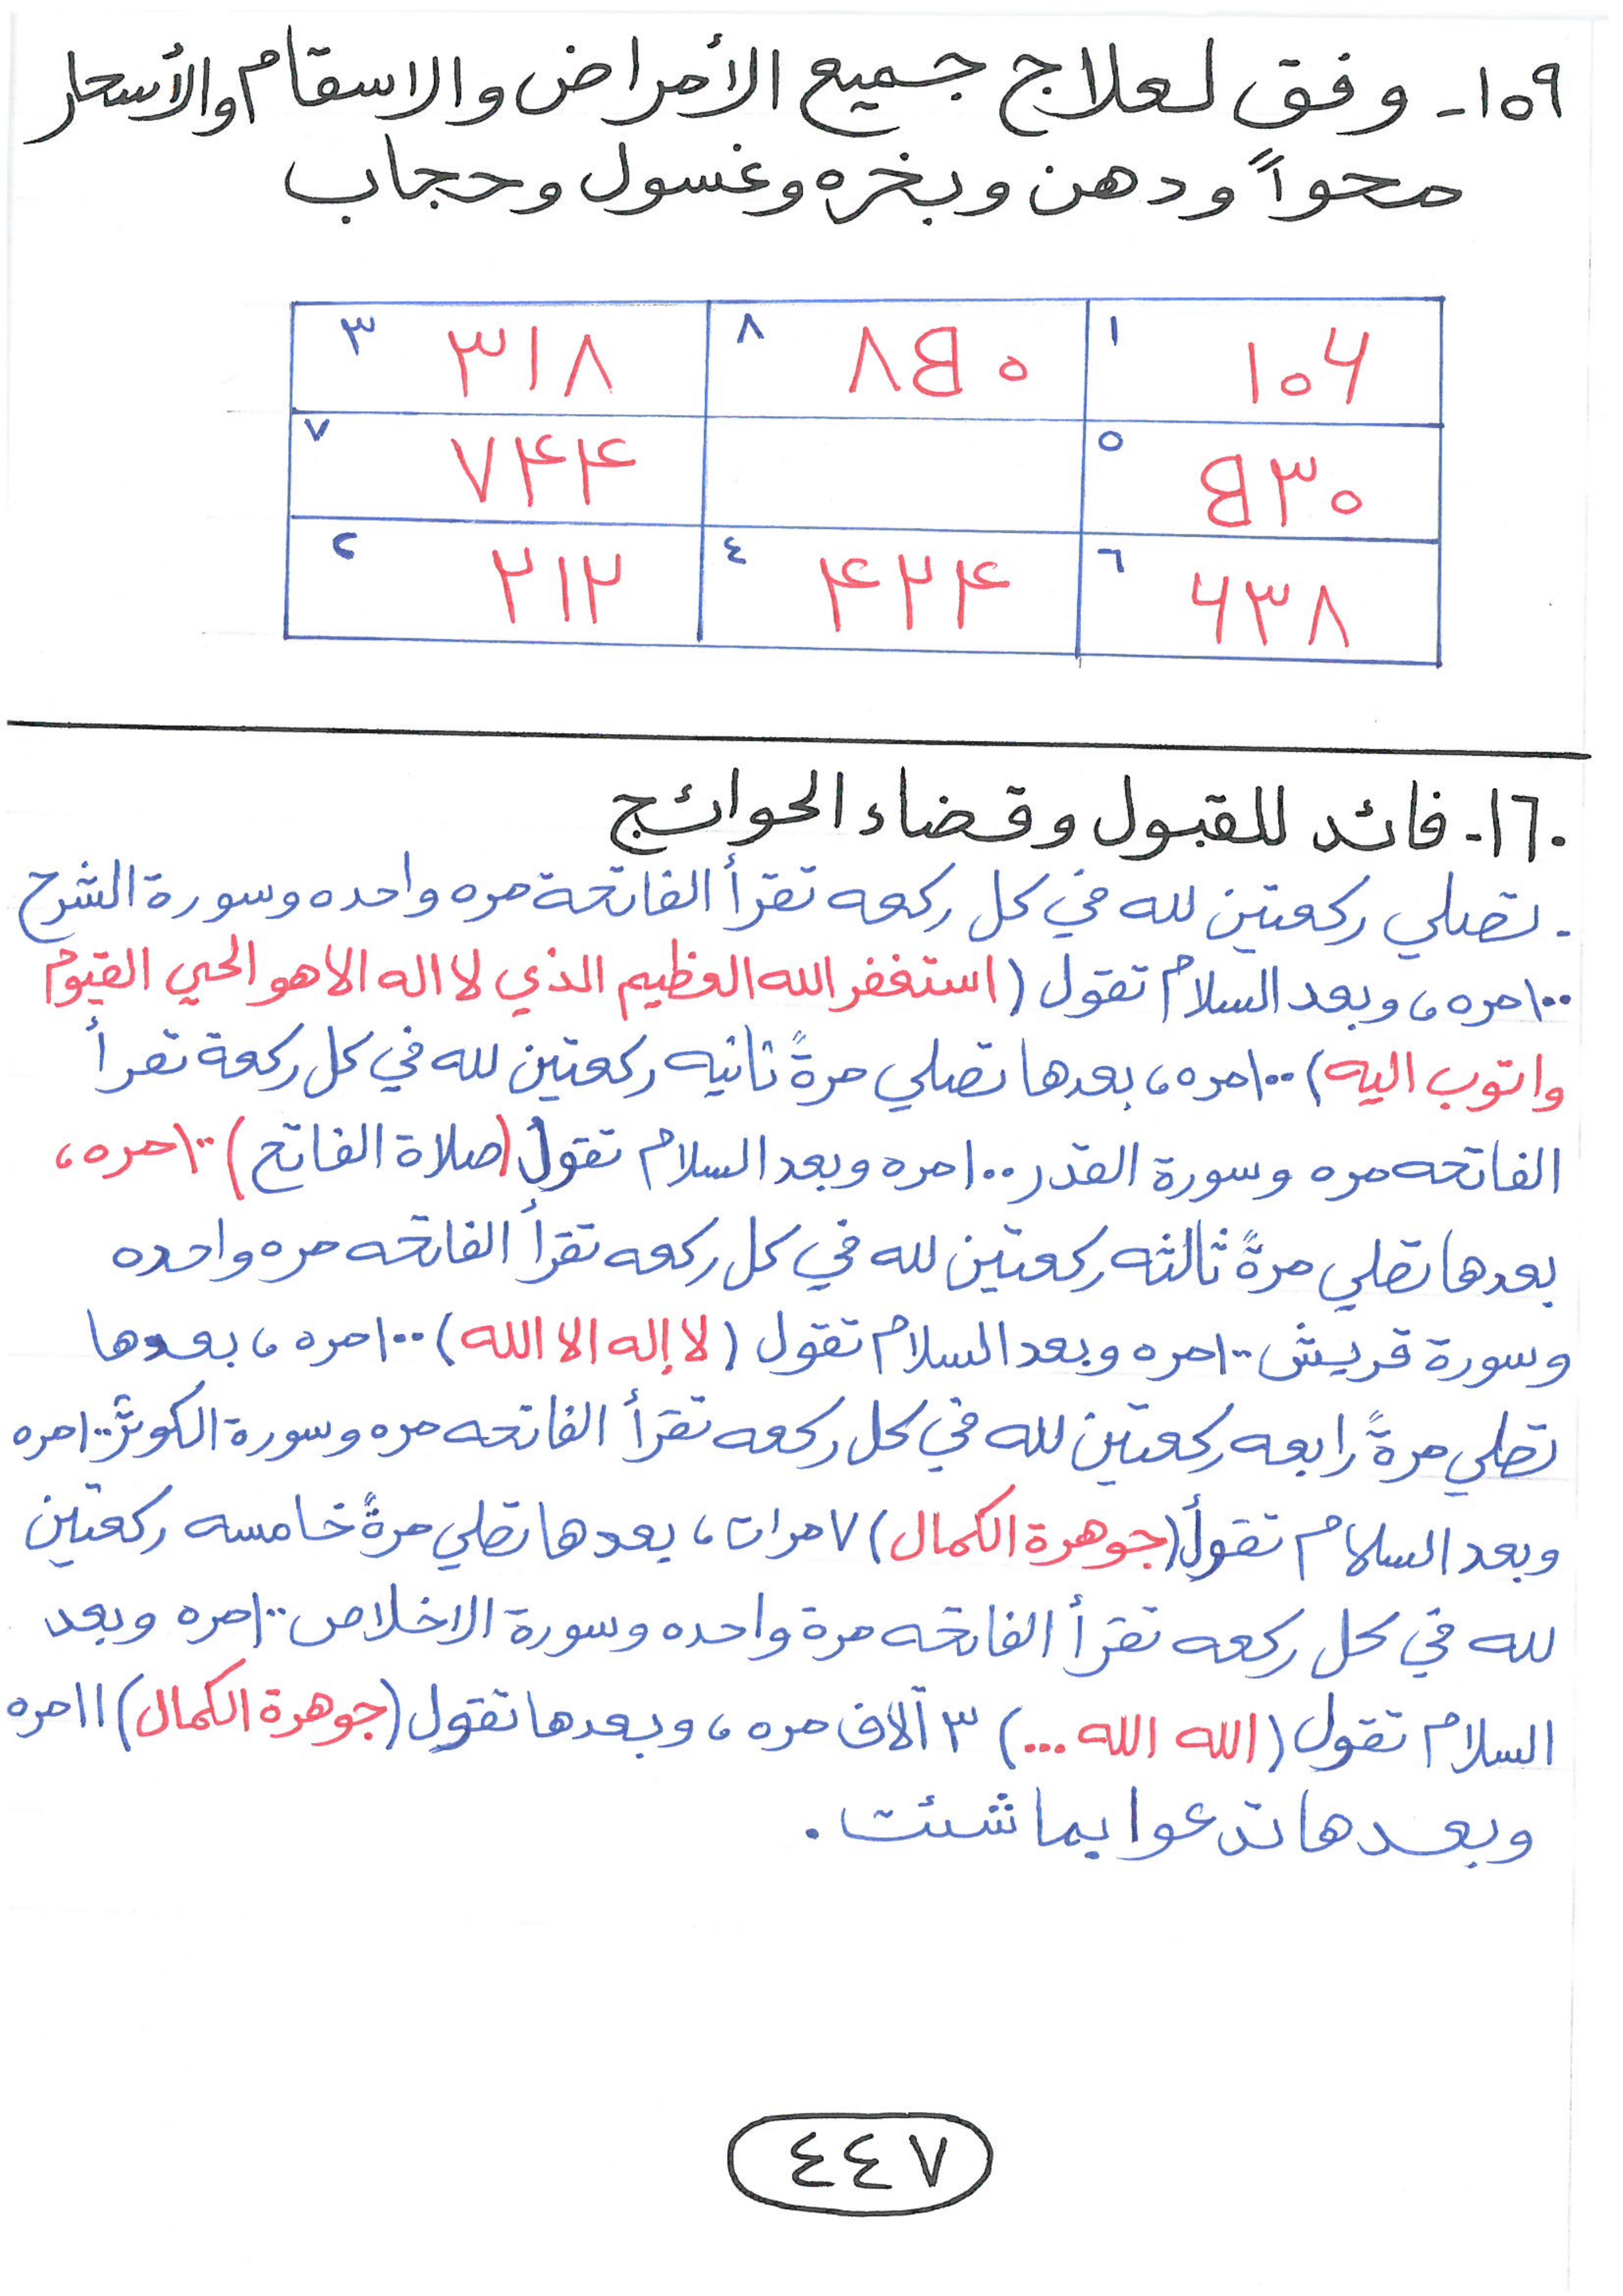 ١٥٩- وفق لعلاج جميع الأمراض والاسقام والأسحار
محواً ودهن وبخره وغسول وحجاب
١ ١٠۶ ٨ ٨۵٠ ٣ ٣١٨
٥ ۵٣٠ ٧ ٧۴۴
٦ ۶٣٨ ٤ ۴٢۴ ٢ ٢١٢
١٦٠- فائد للقبول وقضاء الحوائج
- تصلي ركعتين لله في كل ركعه تقرأ الفاتحة مره واحده وسورة الشرح
١٠٠مره، وبعد السلام تقول (استغفر الله العظيم الذي لا اله الا هو الحي القيوم
واتوب اليه) ١٠٠مره، بعدها تصلي مرةً ثانيه ركعتين لله في كل ركعة تقرأ
الفاتحه مره وسورة القدر ١٠٠مره وبعد السلام تقول (صلاة الفاتح) ١٠٠مره،
بعدها تصلي مرةً ثالثه ركعتين لله في كل ركعه تقرأ الفاتحه مره واحده
وسورة قريش ١٠٠مره وبعد السلام تقول (لا إله الا الله) ١٠٠مره، بعدها
تصلي مرةً رابعه ركعتين لله في كل ركعه تقرأ الفاتحه مره وسورة الكوثر ١٠٠مره
وبعد السلام تقول (جوهرة الكمال) ٧ مرات، بعدها تصلي مرةً خامسه ركعتين
لله في كل ركعه تقرأ الفاتحه مرة واحده وسورة الاخلاص ١٠٠مره وبعد
السلام تقول (الله الله ...) ٣ آلاف مره، وبعدها تقول (جوهرة الكمال) ١١مره
وبعدها تدعوا بما شئت.
٤٤٧